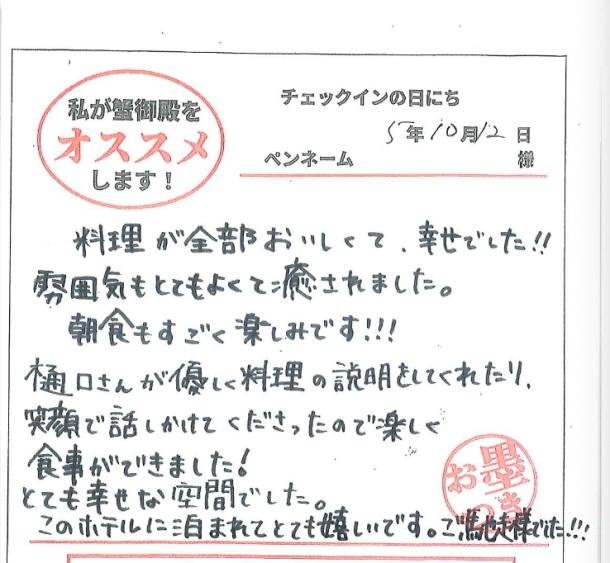 私が蟹御殿を
オススメ
します！
チェックインの日にち
5年10月12日
ペンネーム 様
料理が全部おいしくて、幸せでした!!
雰囲気もとてもよくて癒されました。
朝食もすごく楽しみです!!!
樋口さんが優しく料理の説明をしてくれたり、
笑顔で話しかけてくださったので楽しく
食事ができました!
とても幸せな空間でした。
このホテルに泊まれてとても嬉しいです。ご馳走様でした!!!
お墨つき